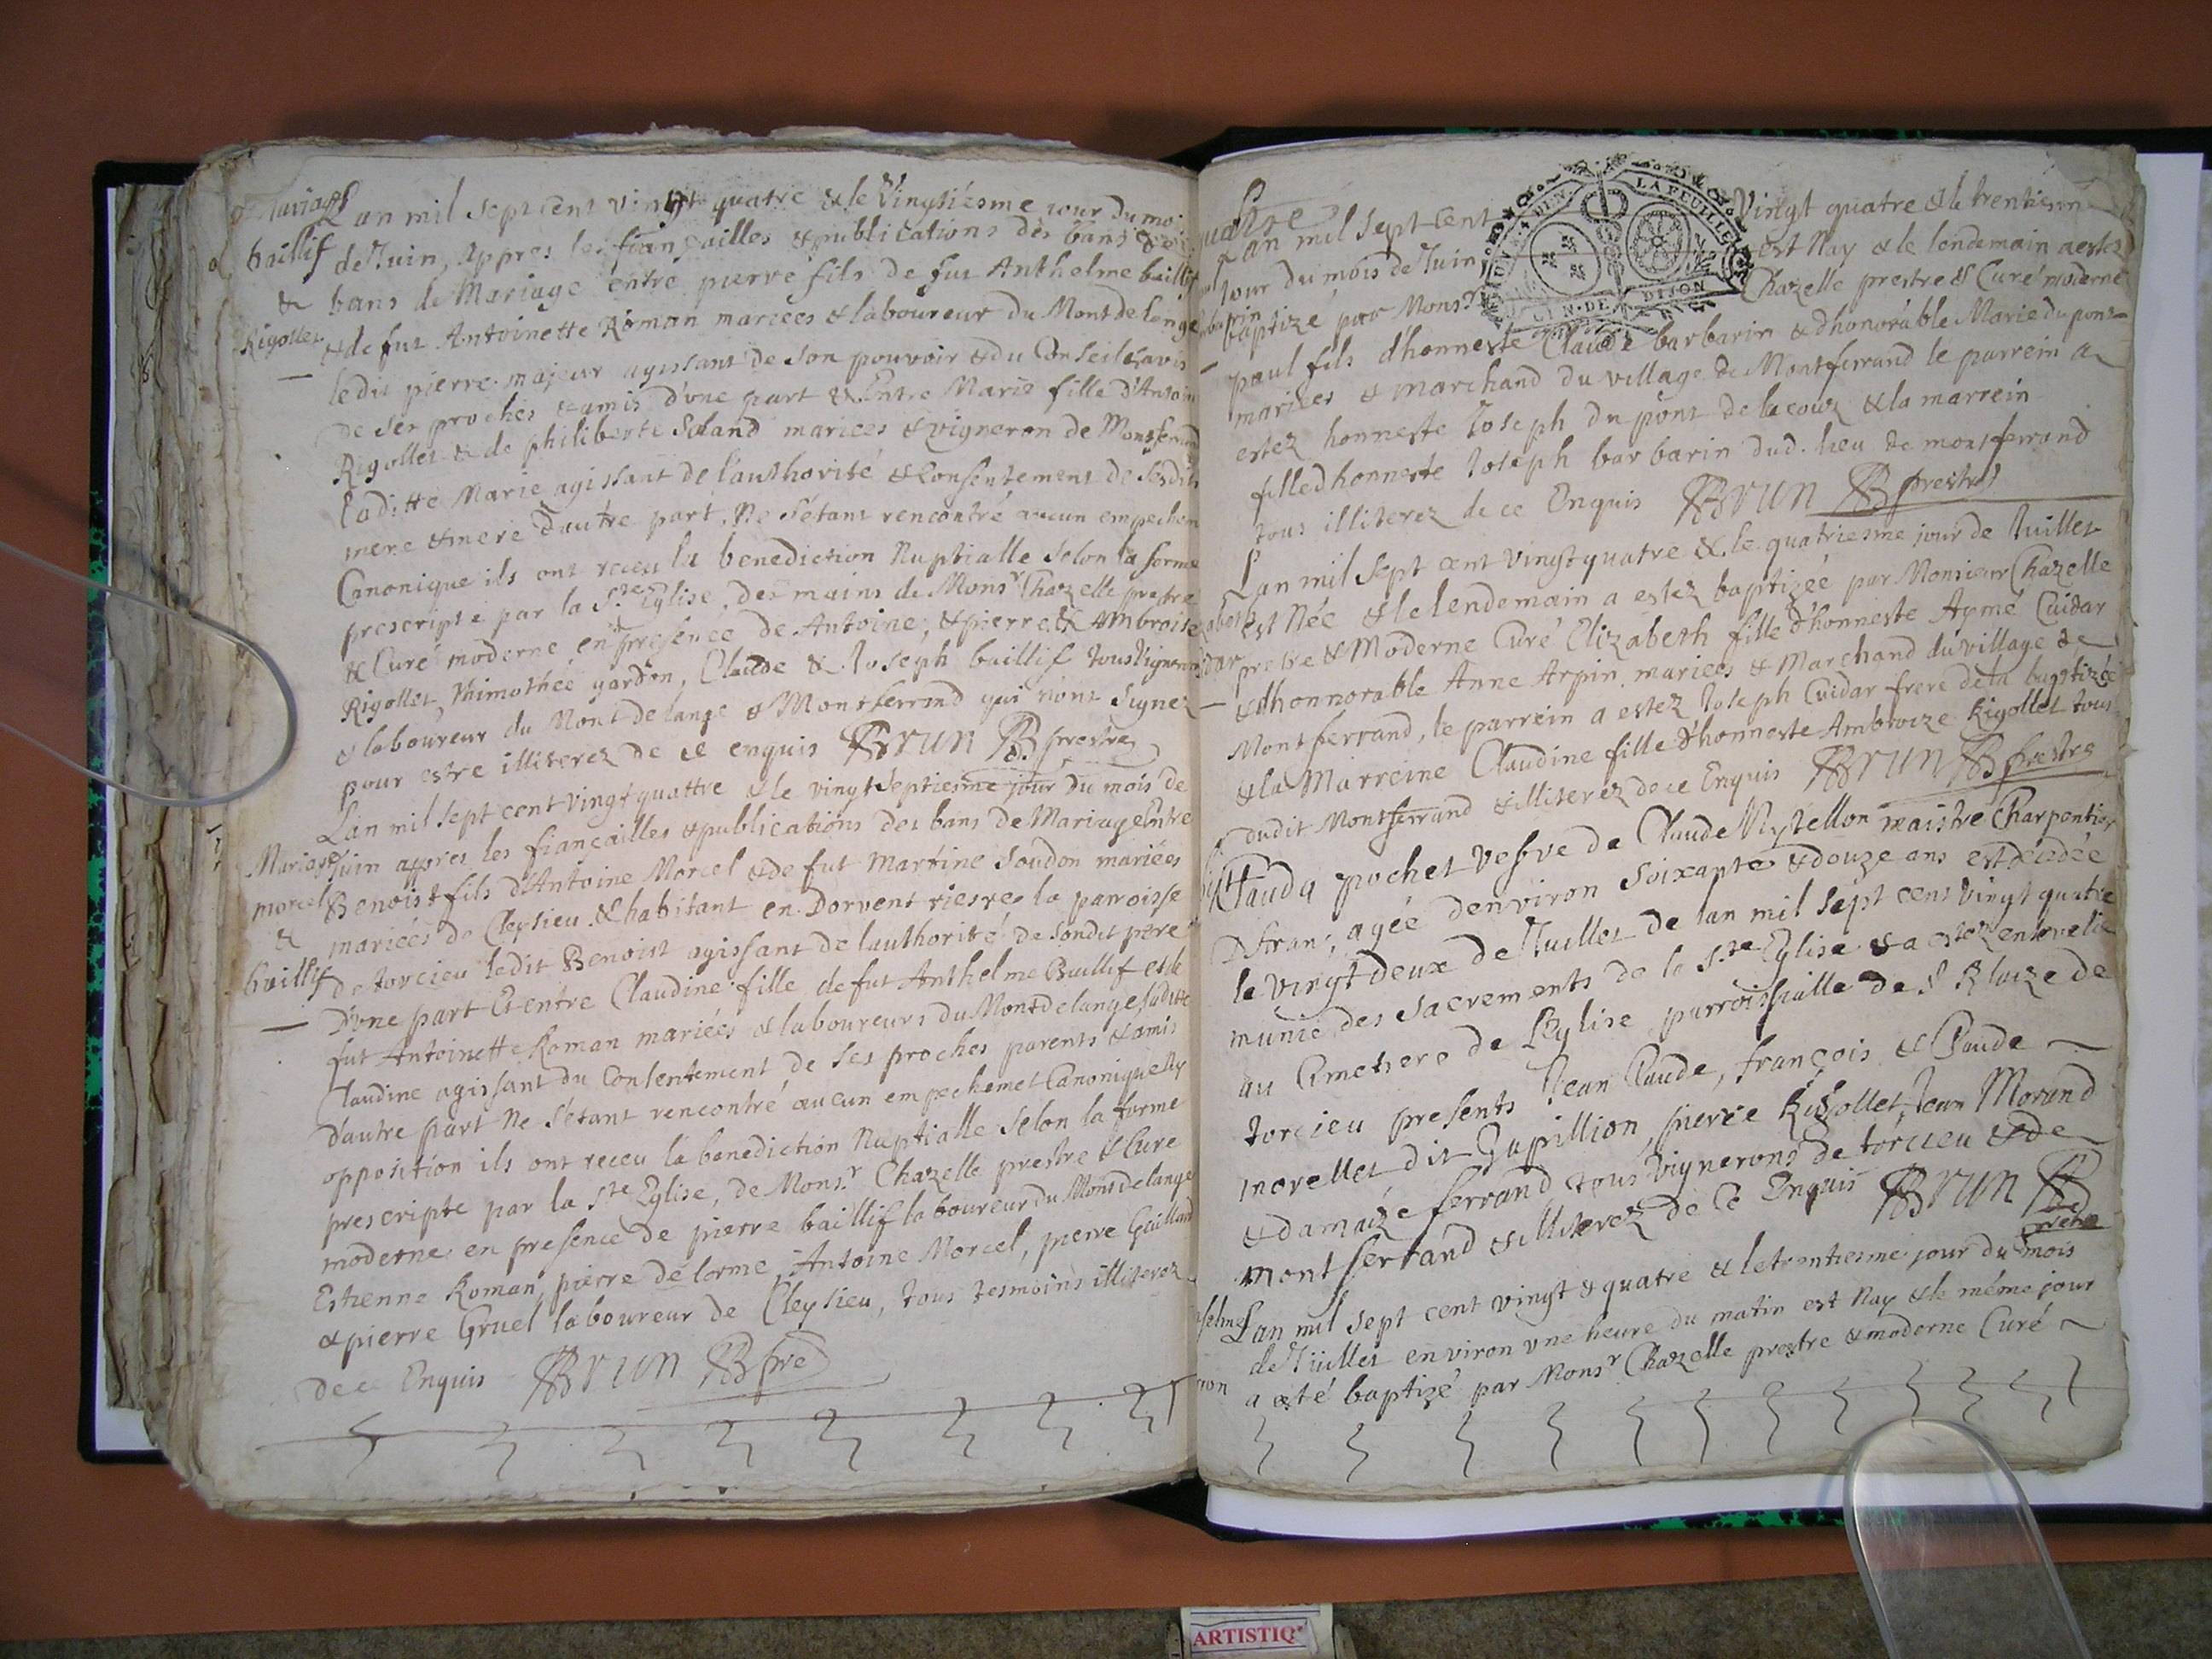 Mariage
baillif
&
Rigollet
Lan mil sept cent vingt quatre & le Vingtiésme jour du moi
de Juin, appres les fiançailles & publications dés bans de
bans de Mariage entre pierre fils de fut Anthelme baillif
& de fut Antoinette Roman mariées & laboureur du Mont de lange
ledit pierre majeur agissant de son pouvoir & du Conseil & avis
de ses proches & amis d'vne part & Entre Marie fille d'Antoin
Rigollet & de philiberte Saland mariees & vigneron de Montferrand
Laditte Marie agissant de l'authorité & Consentement de sesdits
mere & mere d'autre part. Ne s'étant rencontré aucun empechem
Canonique ils ont receu la benediction Nuptialle selon la forme
prescripte par la Ste Eglise, des mains de Monsr Chazelle prestre
& Curé moderne en presence de Antoine, & pierre & Ambroise
Rigollet, thimothée gardon, Claude & Joseph baillif tous vignerons
& laboureur du Mont de lange & Montferrand qui n'ont signez
pour estre illiterez de ce enquis BRUN prestre
Mariage
morcel
&
baillif
Lan mil sept cent vingt quattre & le vingt septiesme jour du mois de
Juin appres les fiançailles & publications des bans de Mariage Entre
Benoist fils d'Antoine Morcel & de fut Martine Soudon mariées
mariées de Cleysieu & habitant en Dorvent riesre la parroisse
de torcieu ledit Benoist agissant de lauthorité de Sondit pere
D'vne part Et entre Claudine fille de fut Anthelme Baillif et de
fut Antoinette Roman mariées & laboureurs du Mont de lange laditte
Claudine agissant du Consentement de ses proches parents & amis
d'autre part Ne s'étant rencontré aucun empechemet Canonique Ny
opposition ils ont receu la benediction Nuptialle selon la forme
prescripte par la Ste Eglise, de Monsr Chazelle prestre & Cure
moderne en presence de pierre baillif laboureur du Mont de lange
Estienne Roman, pierre de lorme Antoine Morcel, pierre Gaillard
& pierre Gruel laboureur de Cleysieu, tous tesmoins illiterez
de ce Enquis BRUN pre
LA FEUILLE
GEN. DE DIJON
Lan mil sept cent Vingt quatre & le trentiem
jour du mois de Juin est Nay & le lendemain a estez
baptizé par Monsr Chazelle prestre & Curé moderne
paul fils d'honneste Claude barbarin & d'honorable Marie du pont
mariées & marchand du village de Montferrand le parrein a
estez honneste Joseph du pont de lacoux & la marrein
fille d'honneste Joseph barbarin dud. lieu de montferrand
tous illiterez de ce Enquis BRUN prestre
Lan mil sept cent vingt quatre & le quatriesme jour de Juillet
est Née & le lendemain a estez baptizée par Monsieur Chazelle
pretre & Moderne Curé Elizabeth fille d'honneste Aymé Cuidar
& d'honnorable Anne Arpin mariées & Marchand du village de
Montferrand, le parrein a estez Joseph Cuidar frere de la baptizée
& la Marreine Claudine fille d'honneste Ambroize Rigollet tous
dudit Montferrand & illiterez de ce Enquis BRUN prestre
Clauda pochet vefve de Claude maistre Charpentier
agée denviron soixante & douze ans est décédée
le vingt deux de Juillet de lan mil sept cent vingt quatre
munie des sacrements de la Ste Eglise & a estez enseveli
au Cimetiere de l'Eglise parroissialle de S Blaize de
torcieu presents Jean Claude, françois & Claude
morellet dit Gapillion, pierre Rigollet, Jean Morand
& damaize ferrand tous vignerons de torcieu & de
montferrand & illiterez de Ce Enquis BRUN pretre
Lan mil sept cent vingt & quatre & le trentiesme jour du mois
de Juillet environ vne heure du matin est Nay & le même jour
a esté baptizé par Monsr Chazelle prestre & moderne Curé
ARTISTIQ